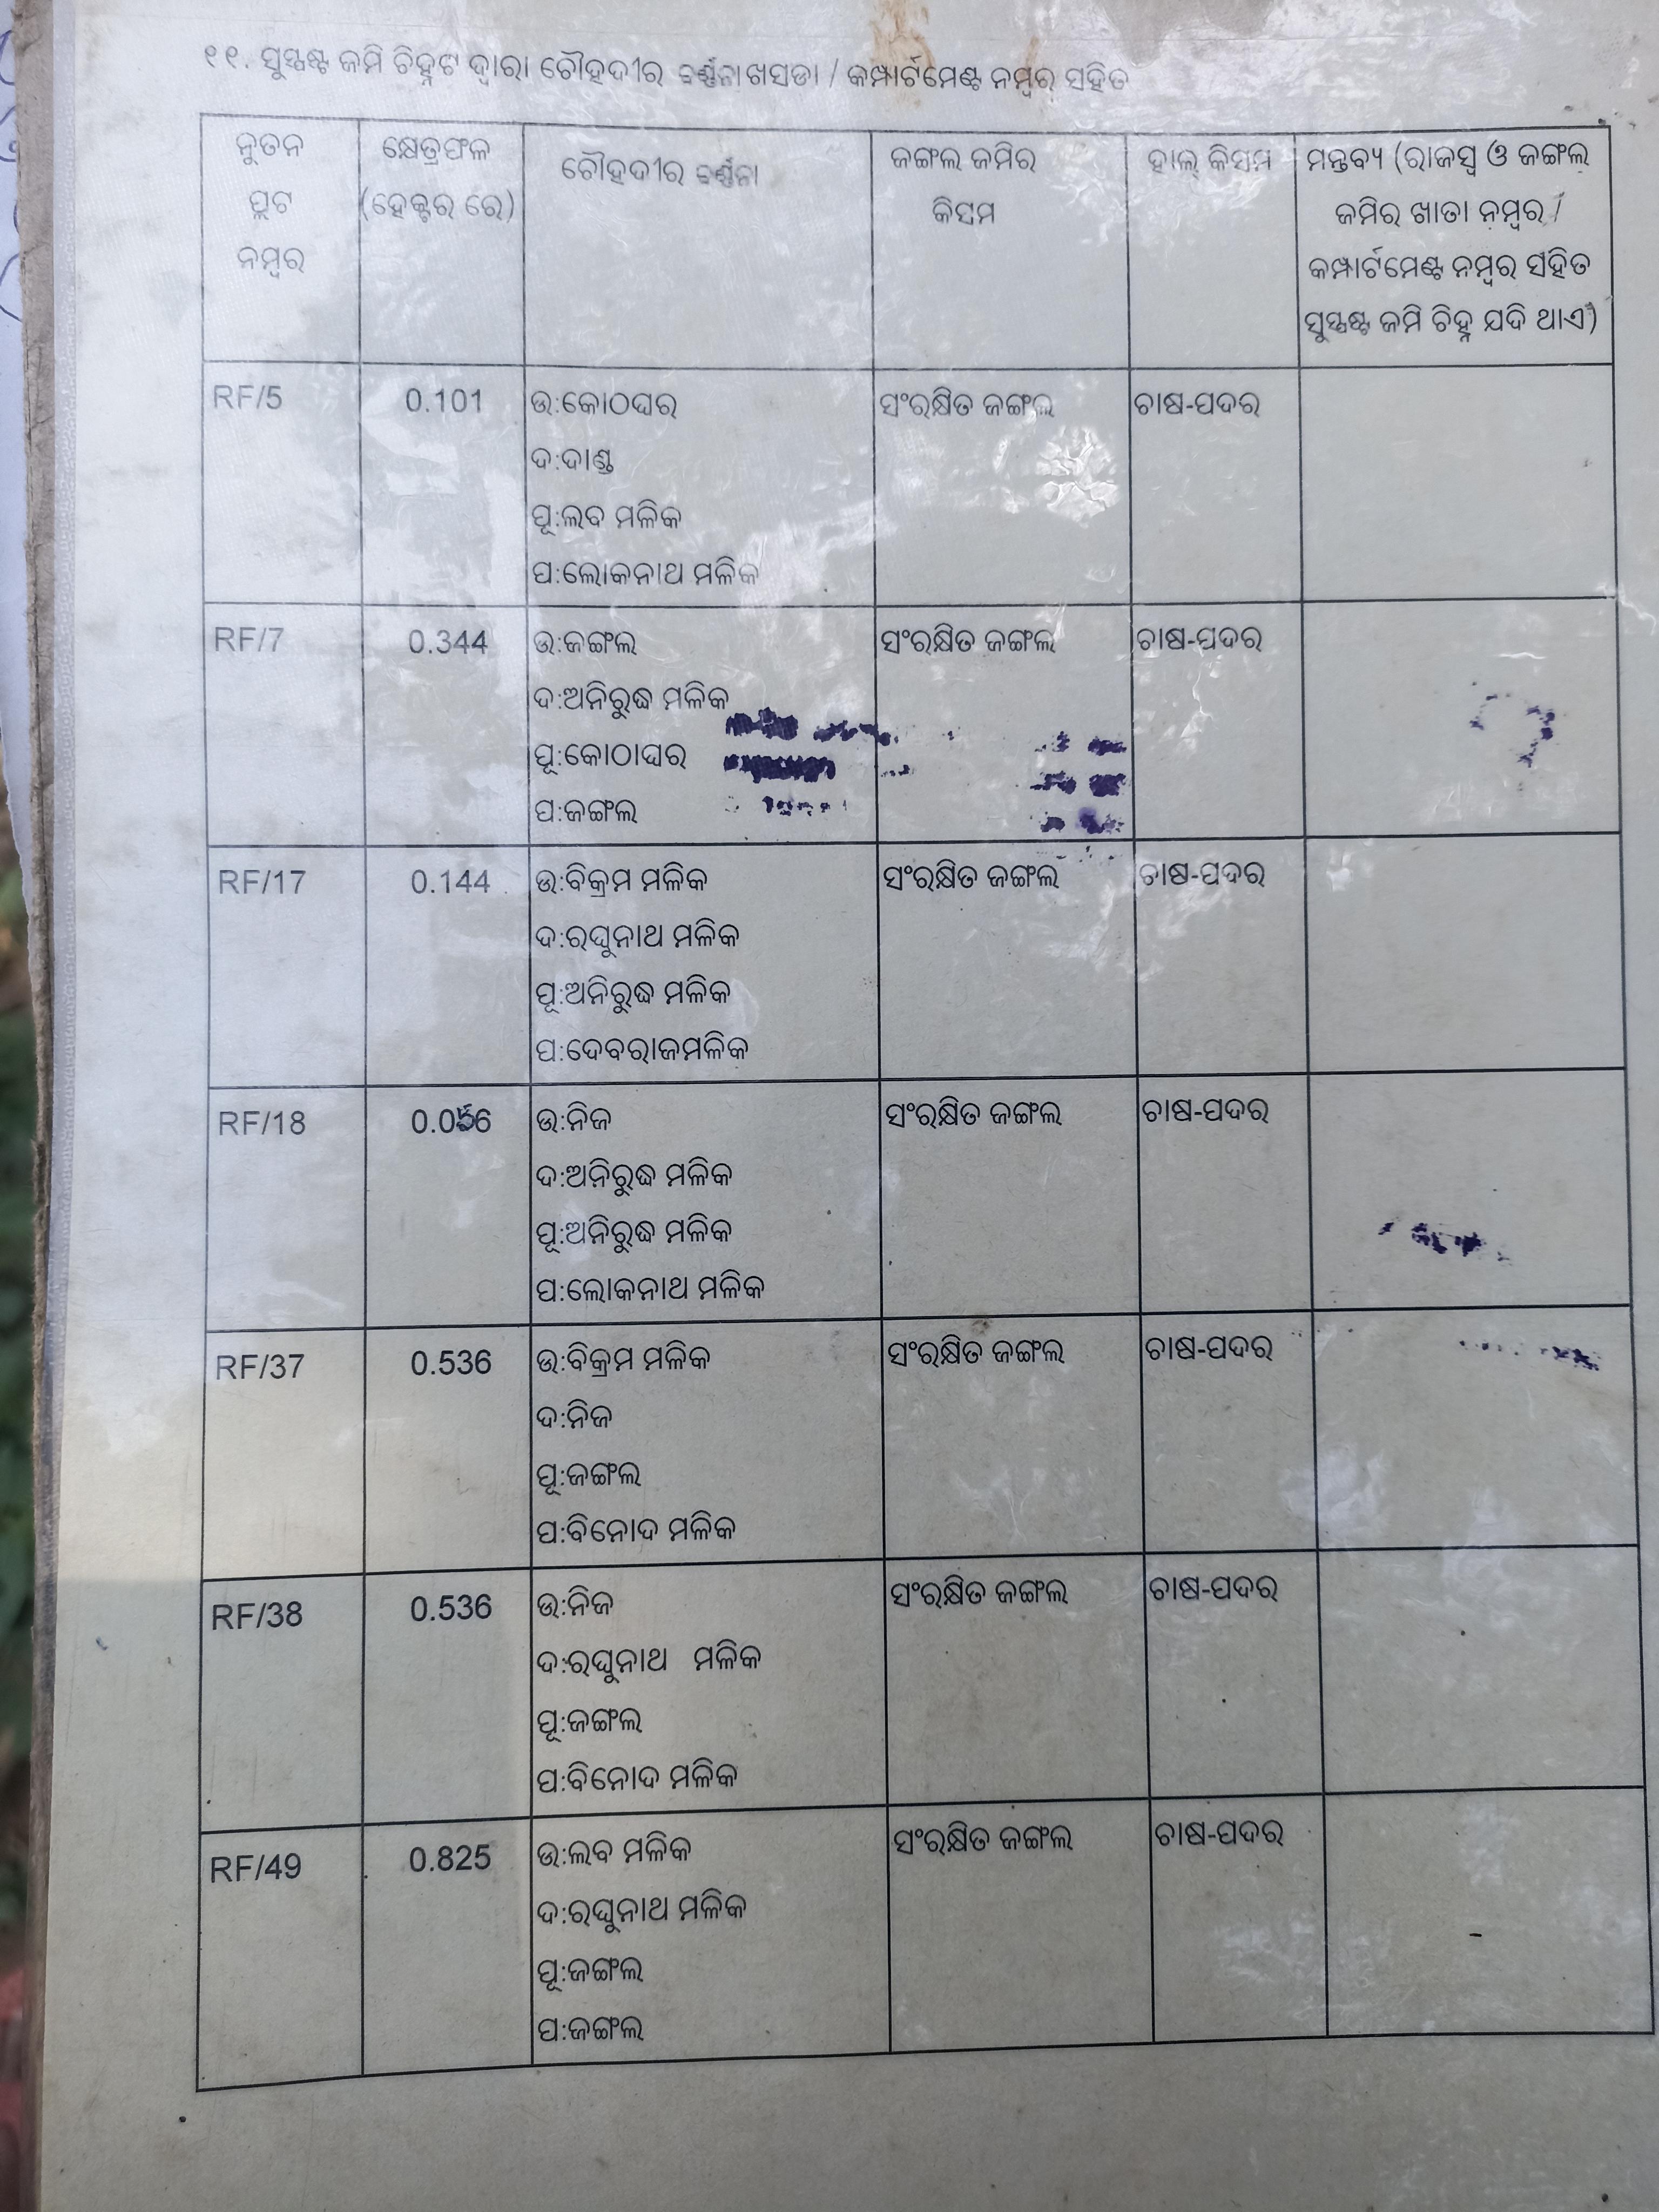 ୧୧. ସୁସ୍ପଷ୍ଟ ଜମି ଚିହ୍ନଟ ଦ୍ୱାରା ଚୌହଦୀର ବର୍ଣ୍ଣନା ଖସଡା / କମ୍ପାର୍ଟମେଣ୍ଟ ନମ୍ବର ସହିତ
ନୁତନ ପ୍ଲଟ ନମ୍ବର
କ୍ଷେତ୍ରଫଳ (ହେକ୍ଟର ରେ)
ଚୌହଦୀର ବର୍ଣ୍ଣନା
ଜଙ୍ଗଲ ଜମିର କିସମ
ହାଲ୍ କିସମ
ମନ୍ତବ୍ୟ (ରାଜସ୍ୱ ଓ ଜଙ୍ଗଲ୍
ଜମିର ଖାତା ନମ୍ବର /
କମ୍ପାର୍ଟମେଣ୍ଟ ନମ୍ବର ସହିତ
ସୁସ୍ପଷ୍ଟ ଜମି ଚିହ୍ନ ଯଦି ଥାଏ)
RF/5 0.101 ଉ:କୋଠଘର ସଂରକ୍ଷିତ ଜଙ୍ଗଲ ଚାଷ-ପଦର
ଦ:ଦାଣ୍ଡ
ପୂ:ଲବ ମଳିକ
ପ:ଲୋକନାଥ ମଳିକ
RF/7 0.344 ଉ:ଜଙ୍ଗଲ ସଂରକ୍ଷିତ ଜଙ୍ଗଲ ଚାଷ-ପଦର
ଦ:ଅନିରୁଦ୍ଧ ମଳିକ
ପୂ:କୋଠାଘର
ପ:ଜଙ୍ଗଲ
RF/17 0.144 ଉ:ବିକ୍ରମ ମଳିକ ସଂରକ୍ଷିତ ଜଙ୍ଗଲ ଚାଷ-ପଦର
ଦ:ରଘୁନାଥ ମଳିକ
ପୂ:ଅନିରୁଦ୍ଧ ମଳିକ
ପ:ଦେବରାଜମଳିକ
RF/18 ଉ:ନିଜ ସଂରକ୍ଷିତ ଜଙ୍ଗଲ ଚାଷ-ପଦର
ଦ:ଅନିରୁଦ୍ଧ ମଳିକ
ପୂ:ଅନିରୁଦ୍ଧ ମଳିକ
ପ:ଲୋକନାଥ ମଳିକ
RF/37 0.536 ଉ:ବିକ୍ରମ ମଳିକ ସଂରକ୍ଷିତ ଜଙ୍ଗଲ ଚାଷ-ପଦର
ଦ:ନିଜ
ପୂ:ଜଙ୍ଗଲ
ପ:ବିନୋଦ ମଳିକ
RF/38 0.536 ଉ:ନିଜ ସଂରକ୍ଷିତ ଜଙ୍ଗଲ ଚାଷ-ପଦର
ଦ:ରଘୁନାଥ ମଳିକ
ପୂ:ଜଙ୍ଗଲ
ପ:ବିନୋଦ ମଳିକ
RF/49 0.825 ଉ:ଲବ ମଳିକ ସଂରକ୍ଷିତ ଜଙ୍ଗଲ ଚାଷ-ପଦର
ଦ:ରଘୁନାଥ ମଳିକ
ପୂ:ଜଙ୍ଗଲ
ପ:ଜଙ୍ଗଲ